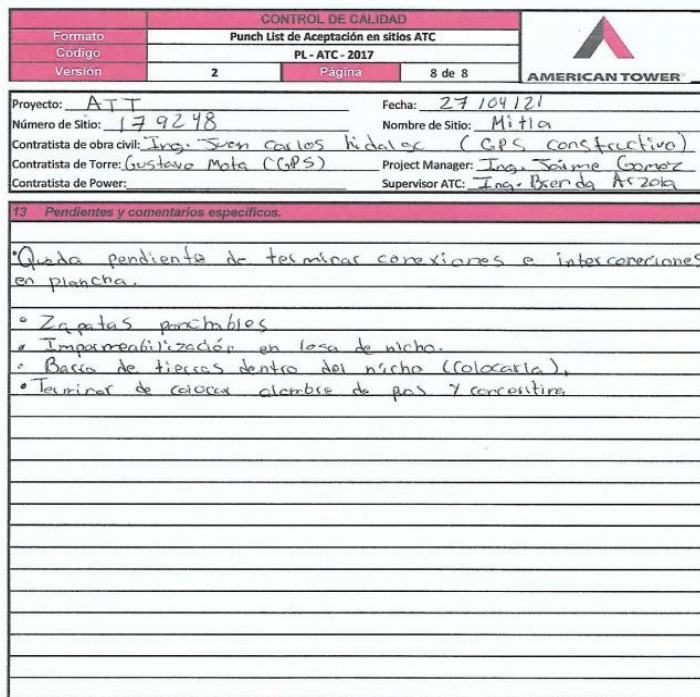 CONTROL DE CALIDAD
Formato Punch List de Aceptación en sitios ATC
Código PL - ATC - 2017
Versión 2 Página 8 de 8
AMERICAN TOWER
Proyecto: ATT Fecha: 27/04/21
Número de Sitio: 179248 Nombre de Sitio: Mitla
Contratista de obra civil: Ing. Juan Carlos hidalgo (GPS constructivo)
Contratista de Torre: Gustavo Mota (GPS) Project Manager: Ing. Jaime Gomez
Contratista de Power: Supervisor ATC: Ing. Brenda Arzola
13 Pendientes y comentarios específicos.
• Queda pendiente de terminar conexiones e interconexiones
en plancha.
• Zapatas ponchables
• Impermeabilización en losa de nicho.
• Barra de tierras dentro del nicho (colocarla).
• Terminar de colocar alambre de pas y concertina